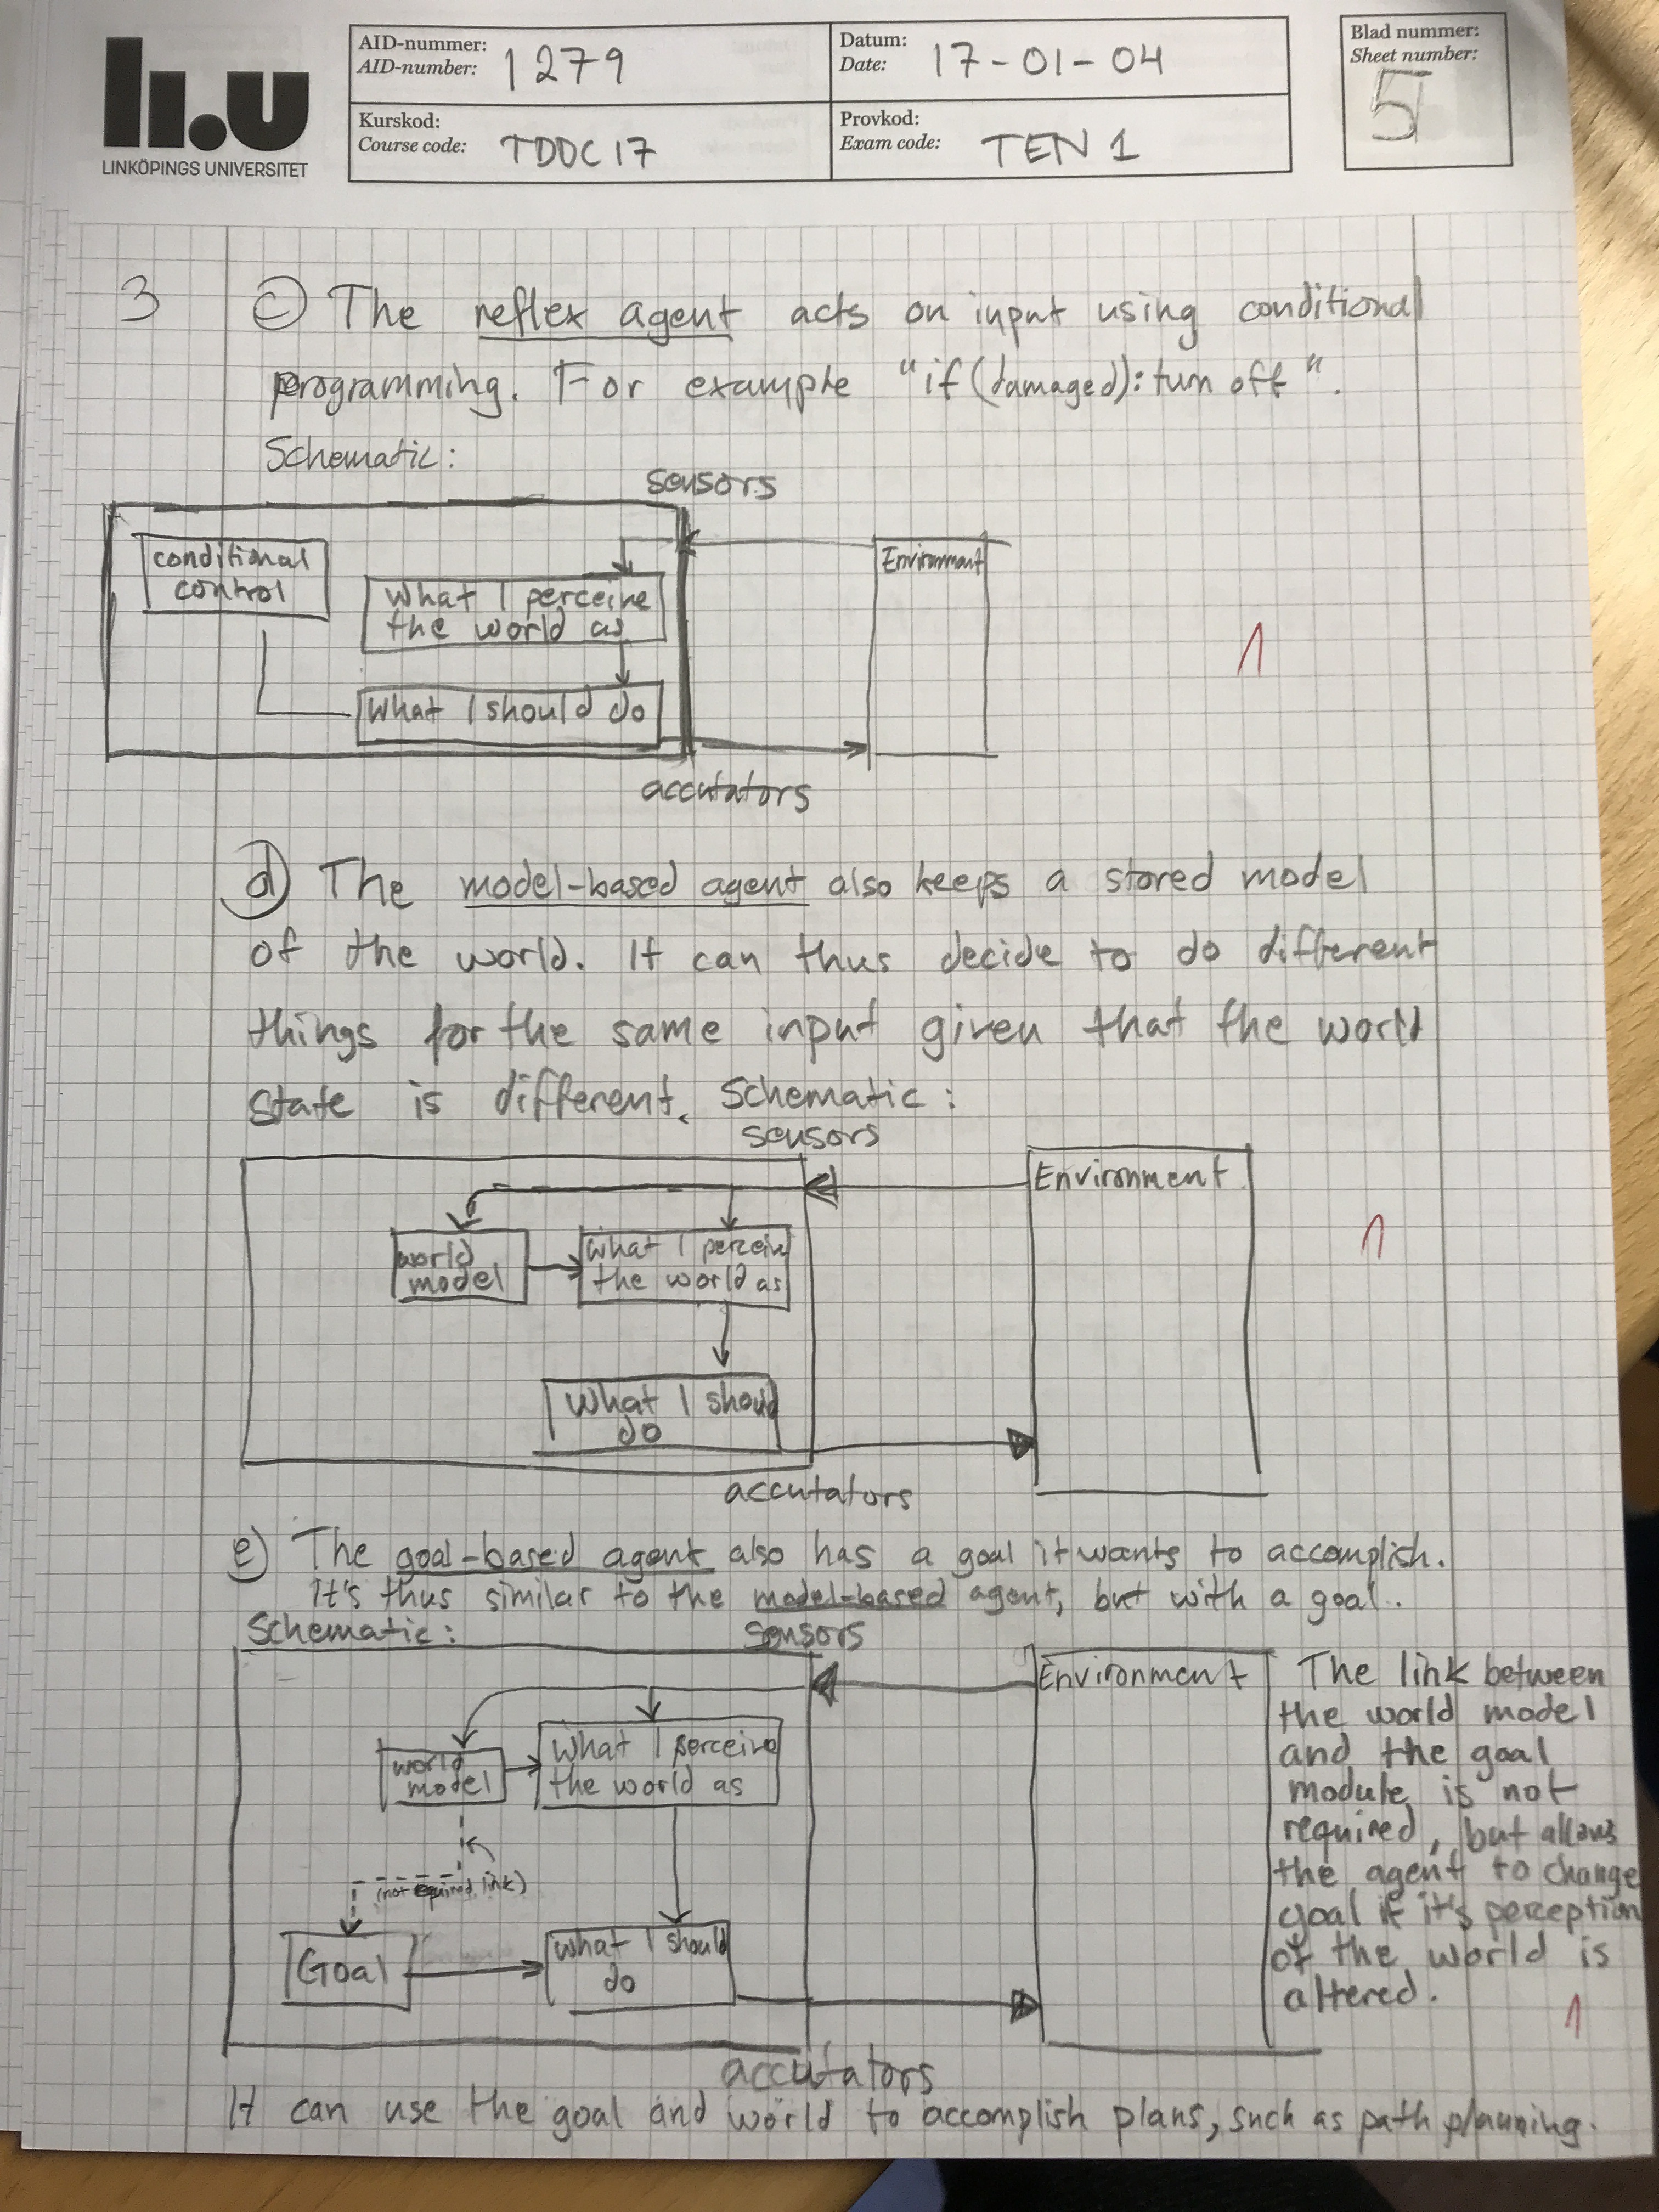 li.u
LINKÖPINGS UNIVERSITET
AID-nummer:
AID-number: 1279
Datum:
Date: 17-01-04
Blad nummer:
Sheet number:
5
Kurskod:
Course code: TDDC17
Provkod:
Exam code: TEN 1
3 c) The reflex agent acts on input using conditional
programming. For example "if(damaged): turn off".
Schematic:
sensors
conditional
control
What I perceive
the world as
What I should do
Environment
accutators
1
d) The model-based agent also keeps a stored model
of the world. It can thus decide to do different
things for the same input given that the world
state is different. Schematic:
sensors
world
model
What I perceive
the world as
What I should
do
Environment
accutators
1
e) The goal-based agent also has a goal it wants to accomplish.
It's thus similar to the model-based agent, but with a goal.
Schematic:
sensors
world
model
What I perceive
the world as
(not required link)
Goal
What I should
do
Environment
accutators
The link between
the world model
and the goal
module is not
required, but allows
the agent to change
goal if it's perception
of the world is
altered.
1
It can use the goal and world to accomplish plans, such as path planning.